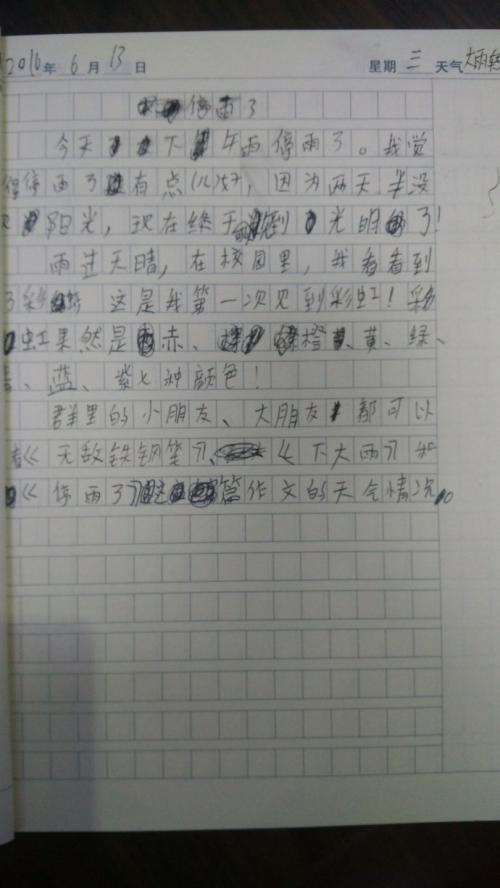 2016年6月13日 星期三 天气大雨转
停雨了
今天下午雨停雨了。我觉
得停雨了有点儿好，因为两天半没
阳光，现在终于到光明了！
雨过天晴，在校园里，我看看到
了彩 这是我第一次见到彩虹！彩
虹果然是赤、橙、黄、绿、
、蓝、紫七种颜色！
群里的小朋友、大朋友都可以
看《无敌铁钢笔》、《下大雨》和
《停雨了》这篇作文的天气情况。